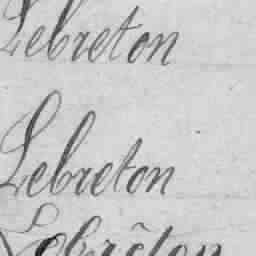 Lebreton
Lebreton
Lebrêton